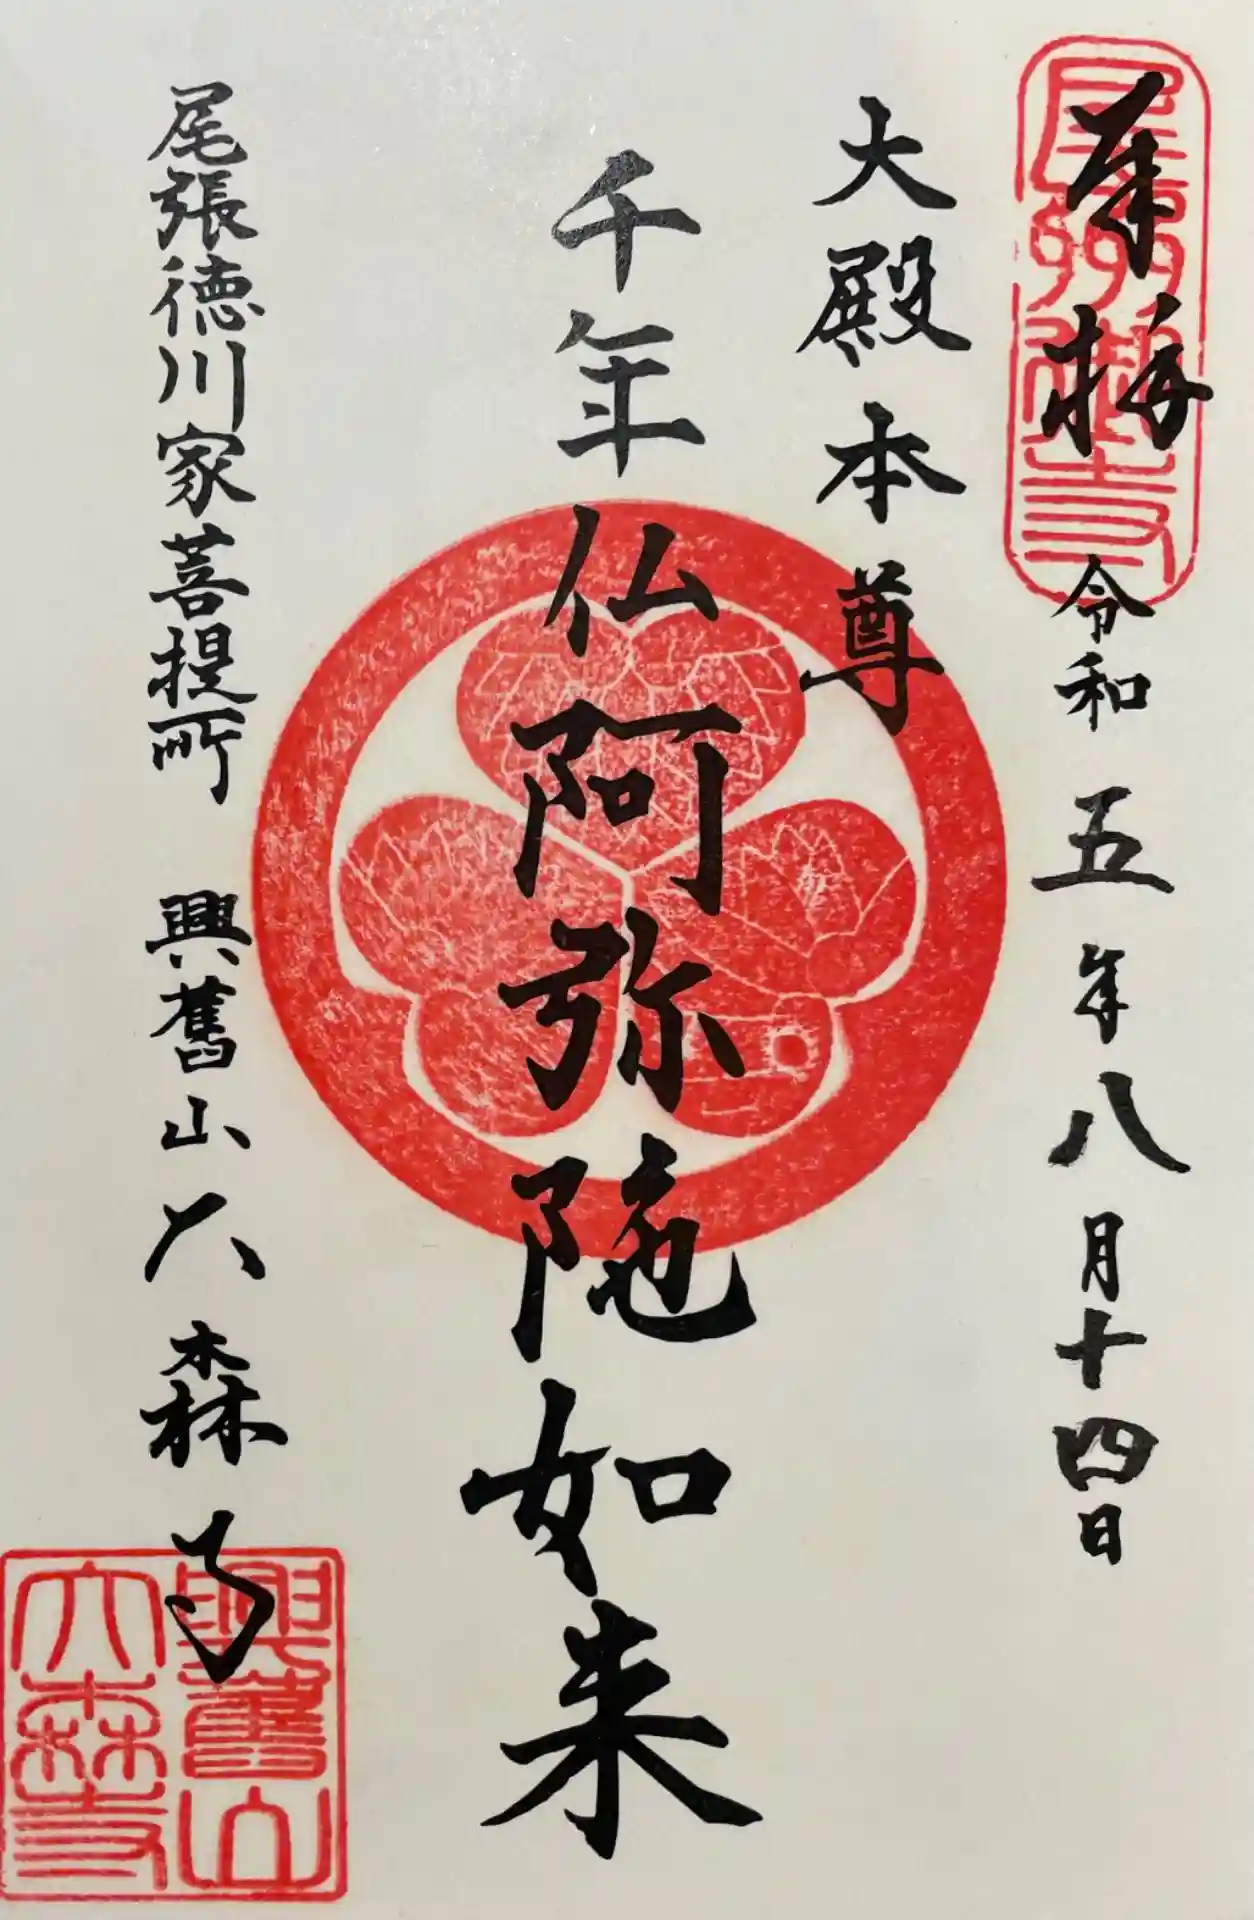 奉拝
令和五年八月十四日
大殿本尊
千年仏阿弥陀如来
尾張徳川家菩提所 興舊山大森寺
尾州御寺
興舊山
大森寺